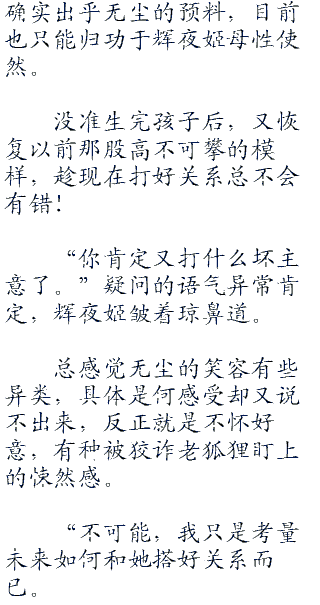 确实出乎无尘的预料，目前
也只能归功于辉夜姬母性使
然。
没准生完孩子后，又恢
复以前那股高不可攀的模
样，趁现在打好关系总不会
有错！
“你肯定又打什么坏主
意了。”疑问的语气异常肯
定，辉夜姬皱着琼鼻道。
总感觉无尘的笑容有些
异类，具体是何感受却又说
不出来，反正就是不怀好
意，有种被狡诈老狐狸盯上
的悚然感。
“不可能，我只是考量
未来如何和她搭好关系而
已。